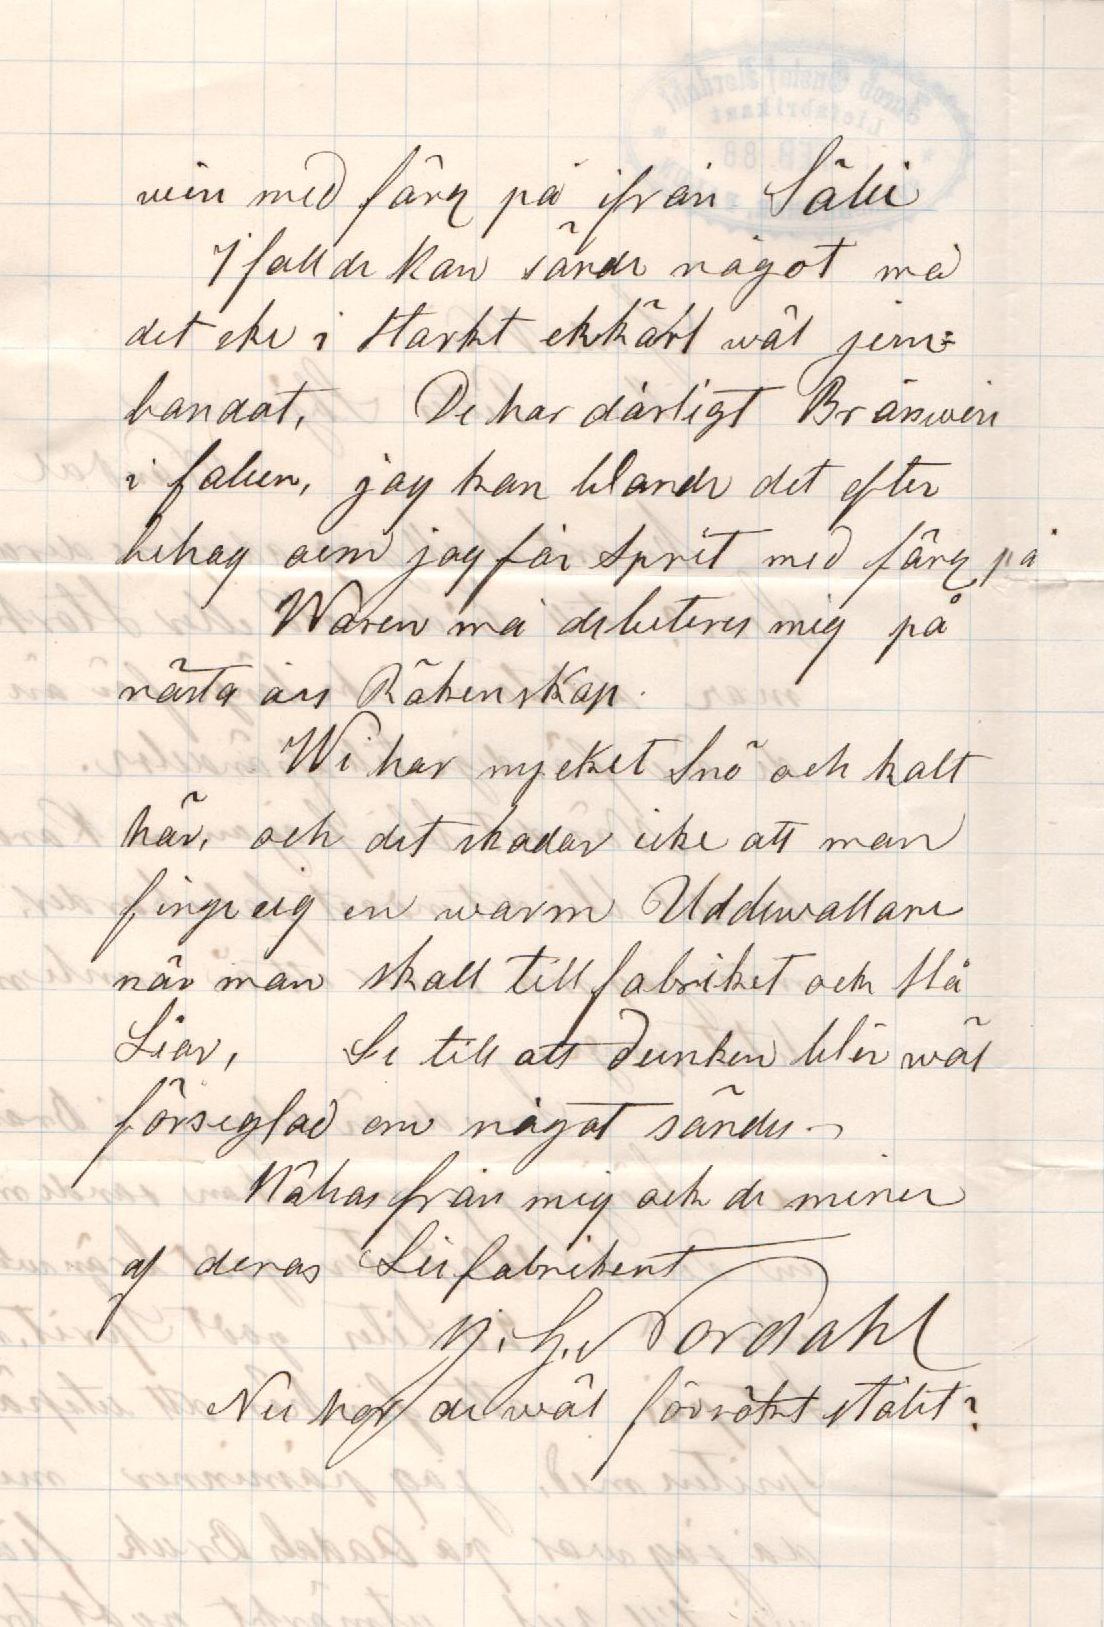 win med färg på ifrån Säbi
Ifall de kan sända något må
det ske i starkt ekkärl wäl jern=
bandat, De har dårligt Bränwin
i falun, jag kan blanda det efter
behag om jag får Sprit med färg på
Waren må debiteres mig på
nästa års Räkenskap.
Wi har mycket Snö och kalt
här, och det skadar icke att man
finge sig en warm Uddewallare
när man skall till fabriket och slå
Liar, Se till att Dunken blir wäl
förseglad om något sändes
Hälsas från mig och de miner
af deras Liefabrikent
J. G. Nordahl
Nu har de wäl försökt stålet?